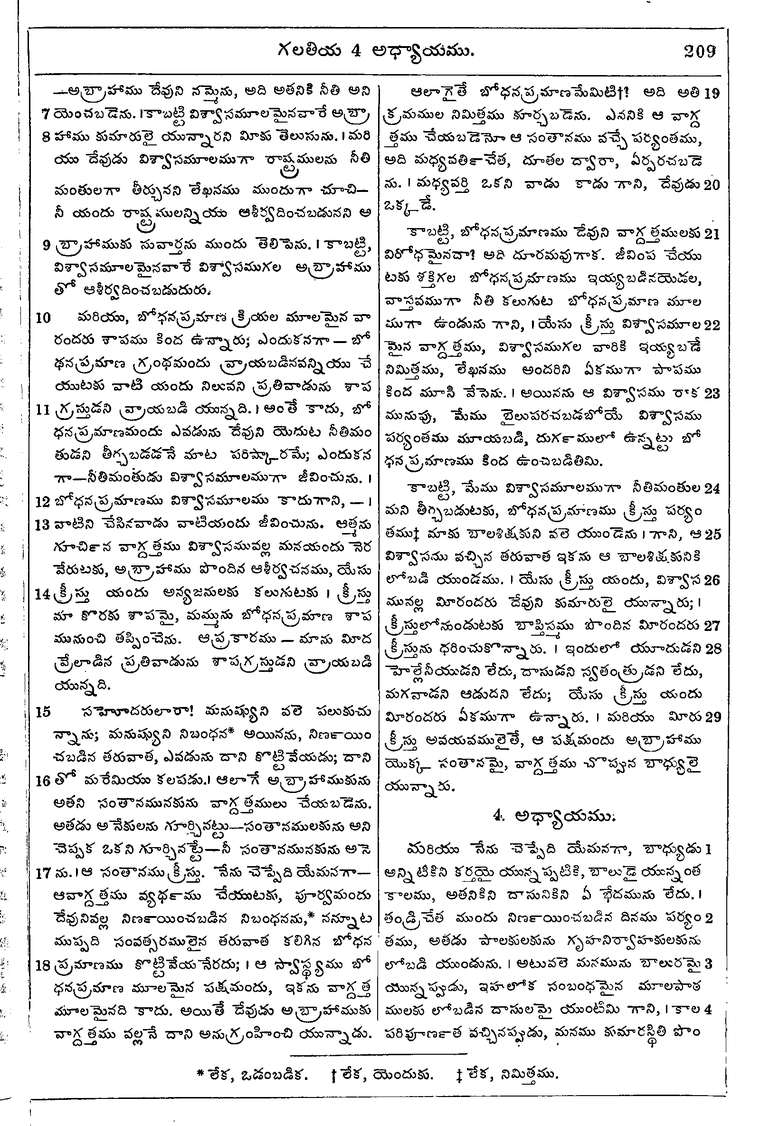 గలతియ 4 అధ్యాయము. 209
—అబ్రాహాము దేవుని నమ్మెను, అది అతనికి నీతి అని
7 యెంచబడెను. । కాబట్టి విశ్వాసమూలమైనవారే అబ్రా
8 హాము కుమారులై యున్నారని మీకు తెలుసును. । మరి
యు దేవుడు విశ్వాసమూలముగా రాష్ట్రములను నీతి
మంతులగా తీర్చునని లేఖనము ముందుగా చూచి—
నీ యందు రాష్ట్రములన్నియు ఆశీర్వదించబడునని అ
9 బ్రాహాముకు సువార్తను ముందు తెలిపెను. । కాబట్టి,
విశ్వాసమూలమైనవారే విశ్వాసముగల అబ్రాహాము
తో ఆశీర్వదించబడుదురు.
10 మరియు, బోధనప్రమాణ క్రియల మూలమైన వా
రందరు శాపము కింద ఉన్నారు; ఎందుకనగా — బో
ధనప్రమాణ గ్రంథమందు వ్రాయబడినవన్నియు చే
యుటకు వాటి యందు నిలువని ప్రతివాడును శాప
11 గ్రస్తుడని వ్రాయబడి యున్నది. । అంతే కాదు, బో
ధనప్రమాణమందు ఎవడును దేవుని యెదుట నీతిమం
తుడని తీర్చబడడనే మాట పరిష్కారమే; ఎందుకన
గా—నీతిమంతుడు విశ్వాసమూలముగా జీవించును. ।
12 బోధనప్రమాణము విశ్వాసమూలము కాదుగాని, — ।
13 వాటిని చేసినవాడు వాటియందు జీవించును. ఆత్మను
గూర్చిన వాగ్దత్తము విశ్వాసమువల్ల మనయందు నెర
వేరుటకు, అబ్రాహాము పొందిన ఆశీర్వచనము, యేసు
14 క్రీస్తు యందు అన్యజనులకు కలుగుటకు । క్రీస్తు
మా కొరకు శాపమై, మమ్మును బోధనప్రమాణ శాప
మునుంచి తప్పించెను. ఆప్రకారము — మాను మీద
వ్రేలాడిన ప్రతివాడును శాపగ్రస్తుడని వ్రాయబడి
యున్నది.
15 సహోదరులారా! మనుష్యుని వలె పలుకుచు
న్నాను; మనుష్యుని నిబంధన* అయినను, నిర్ణయిం
చబడిన తరువాత, ఎవడును దాని కొట్టివేయడు; దాని
16 తో మరేమియు కలపడు. । ఆలాగే అబ్రాహాముకును
అతని సంతానమునకును వాగ్దత్తములు చేయబడెను.
అతడు అనేకులను గూర్చినట్టు—సంతానములకును అని
చెప్పక ఒకని గూర్చినట్టే—నీ సంతానమునకును అనె
17 ను. । ఆ సంతానము క్రీస్తు. నేను చెప్పేది యేమనగా—
ఆవాగ్దత్తము వ్యర్థము చేయుటకు, పూర్వమందు
దేవునివల్ల నిర్ణయించబడిన నిబంధనను,* నన్నూట
ముప్పది సంవత్సరములైన తరువాత కలిగిన బోధన
18 ప్రమాణము కొట్టివేయనేరదు; । ఆ స్వాస్థ్యము బో
ధనప్రమాణ మూలమైన పక్షమందు, ఇకను వాగ్దత్త
మూలమైనది కాదు. అయితే దేవుడు అబ్రాహాముకు
వాగ్దత్తము వల్లనే దాని అనుగ్రహించి యున్నాడు.
ఆలాగైతే బోధనప్రమాణమేమిటి†? అది అతి 19
క్రమముల నిమిత్తము కూర్చబడెను. ఎననికి ఆ వాగ్ద
త్తము చేయబడెనో ఆ సంతానము వచ్చే పర్యంతము,
అది మధ్యవర్తిచేత, దూతల ద్వారా, ఏర్పరచబడె
ను. । మధ్యవర్తి ఒకని వాడు కాడు గాని, దేవుడు 20
ఒక్కడే.
కాబట్టి, బోధనప్రమాణము దేవుని వాగ్దత్తములకు 21
విరోధమైనదా? అది దూరమవుగాక. జీవింప చేయు
టకు శక్తిగల బోధనప్రమాణము ఇయ్యబడినయెడల,
వాస్తవముగా నీతి కలుగుట బోధనప్రమాణ మూల
ముగా ఉండును గాని, । యేసు క్రీస్తు విశ్వాసమూల 22
మైన వాగ్దత్తము, విశ్వాసముగల వారికి ఇయ్యబడే
నిమిత్తము, లేఖనము అందరిని ఏకముగా పాపము
కింద మూసి వేసెను. । అయినను ఆ విశ్వాసము రాక 23
మునుపు, మేము బైలుపరచబడబోయే విశ్వాసము
పర్యంతము మూయబడి, దుర్గములో ఉన్నట్టు బో
ధనప్రమాణము కింద ఉంచబడితిమి.
కాబట్టి, మేము విశ్వాసమూలముగా నీతిమంతుల 24
మని తీర్చబడుటకు, బోధనప్రమాణము క్రీస్తు పర్యం
తము‡ మాకు బాలశిక్షకుని వలె యుండెను । గాని, ఆ 25
విశ్వాసము వచ్చిన తరువాత ఇకను ఆ బాలశిక్షకునికి
లోబడి యుండము. । యేసు క్రీస్తు యందు, విశ్వాస 26
మువల్ల మీరందరు దేవుని కుమారులై యున్నారు; ।
క్రీస్తులోనుండుటకు బాప్తిస్మము పొందిన మీరందరు 27
క్రీస్తును ధరించుకొన్నారు. । ఇందులో యూదుడని 28
హెల్లేనీయుడని లేదు, దాసుడని స్వతంత్రుడని లేదు,
మగవాడని ఆడుదని లేదు; యేసు క్రీస్తు యందు
మీరందరు ఏకముగా ఉన్నారు. । మరియు మీరు 29
క్రీస్తు అవయవములైతే, ఆ పక్షమందు అబ్రాహాము
యొక్క సంతానమై, వాగ్దత్తము చొప్పున బాధ్యులై
యున్నారు.
4. అధ్యాయము.
మరియు నేను చెప్పేది యేమనగా, బాధ్యుడు 1
అన్నిటికిని కర్తయై యున్నప్పటికి, బాలుడై యున్నంత
కాలము, అతనికిని దాసునికిని ఏ భేదమును లేదు. ।
తండ్రిచేత ముందు నిర్ణయించబడిన దినము పర్యం 2
తము, అతడు పాలకులకును గృహనిర్వాహకులకును
లోబడి యుండును. । అటువలె మనమును బాలురమై 3
యున్నప్పుడు, ఇహలోక సంబంధమైన మూలపాఠ
ములకు లోబడిన దాసులమై యుంటిమి గాని, । కాల 4
పరిపూర్ణత వచ్చినప్పుడు, మనము కుమారస్థితి పొం
* లేక, ఒడంబడిక. † లేక, యెందుకు. ‡ లేక, నిమిత్తము.